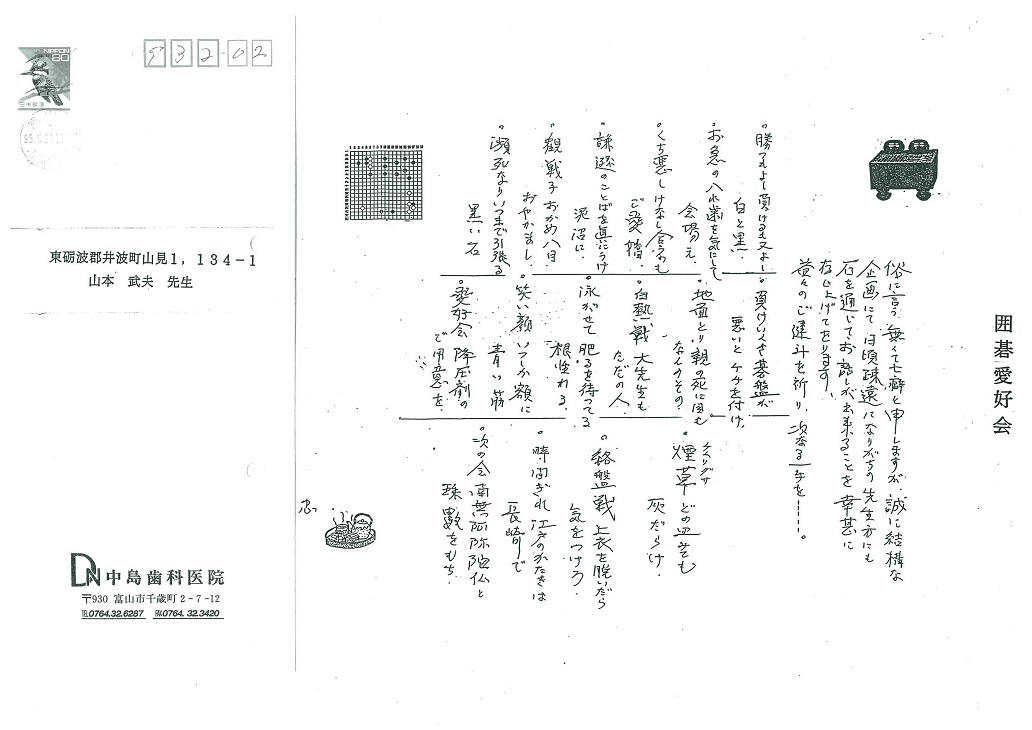 NIPPON
80
日本郵便
932-02
東砺波郡井波町山見1，134－1
山本　武夫　先生
DN 中島歯科医院
〒930 富山市千歳町2-7-12
TEL 0764.32.6287 FAX 0764.32.3420
囲碁愛好会
俗に言う無くて七癖と申しますが、誠に結構な
企画にて日頃疎遠になりがちの先生方にも
石を通じてお話しが出来ることを幸甚に
存じ上げております、
益々のご健斗を祈り、次なる一手を……。
勝てよし負けるも又よし
白と黒、
お急の入れ歯を気にして
会場え、
くち悪しけなし合うも
ご愛嬌、
謙遜のことばを真にうけ
泥沼に、
観戦子おかめ八目
おやかまし、
瀕死なりいつまで引張る
黒い石
負けいくさ碁盤が
悪いとケチを付け、
地面とり親の死に目も
なんのその、
白熱戦大先生も
ただの人、
泳がせて肥るを待ってる
根性われる、
笑い顔いつしか額に
青い筋
愛好会降圧剤の
ご用意を、
煙草どの皿みても
灰だらけ、
終盤戦上衣を脱いだら
気をつけろ、
時間ぎれ江戸のかたきは
長崎で
次の会南無阿弥陀仏と
珠数をもち、
忠